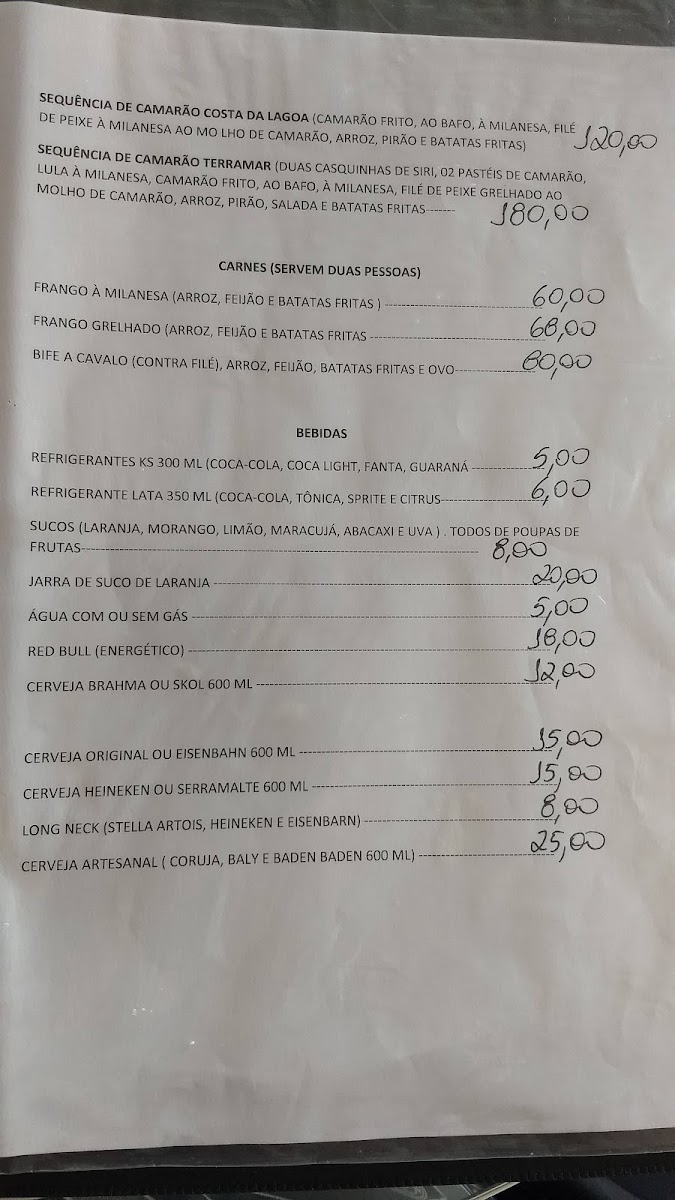 SEQUÊNCIA DE CAMARÃO COSTA DA LAGOA (CAMARÃO FRITO, AO BAFO, À MILANESA, FILÉ
DE PEIXE À MILANESA AO MO LHO DE CAMARÃO, ARROZ, PIRÃO E BATATAS FRITAS) 120,00
SEQUÊNCIA DE CAMARÃO TERRAMAR (DUAS CASQUINHAS DE SIRI, 02 PASTÉIS DE CAMARÃO,
LULA À MILANESA, CAMARÃO FRITO, AO BAFO, À MILANESA, FILÉ DE PEIXE GRELHADO AO
MOLHO DE CAMARÃO, ARROZ, PIRÃO, SALADA E BATATAS FRITAS------- 180,00
CARNES (SERVEM DUAS PESSOAS)
FRANGO À MILANESA (ARROZ, FEIJÃO E BATATAS FRITAS ) ------------------------------- 60,00
FRANGO GRELHADO (ARROZ, FEIJÃO E BATATAS FRITAS ---------------------------------- 68,00
BIFE A CAVALO (CONTRA FILÉ), ARROZ, FEIJÃO, BATATAS FRITAS E OVO---------------- 80,00
BEBIDAS
REFRIGERANTES KS 300 ML (COCA-COLA, COCA LIGHT, FANTA, GUARANÁ -------------- 5,00
REFRIGERANTE LATA 350 ML (COCA-COLA, TÔNICA, SPRITE E CITRUS------------------- 6,00
SUCOS (LARANJA, MORANGO, LIMÃO, MARACUJÁ, ABACAXI E UVA ) . TODOS DE POUPAS DE
FRUTAS-------------------------------------------------------------------------------- 8,00
JARRA DE SUCO DE LARANJA ---------------------------------------------------------------- 20,00
ÁGUA COM OU SEM GÁS -------------------------------------------------------------------- 5,00
RED BULL (ENERGÉTICO) --------------------------------------------------------------------- 18,00
CERVEJA BRAHMA OU SKOL 600 ML --------------------------------------------------------- 12,00
CERVEJA ORIGINAL OU EISENBAHN 600 ML ------------------------------------------------ 15,00
CERVEJA HEINEKEN OU SERRAMALTE 600 ML --------------------------------------------- 15,00
LONG NECK (STELLA ARTOIS, HEINEKEN E EISENBARN) ----------------------------------- 8,00
CERVEJA ARTESANAL ( CORUJA, BALY E BADEN BADEN 600 ML) -------------------------- 25,00